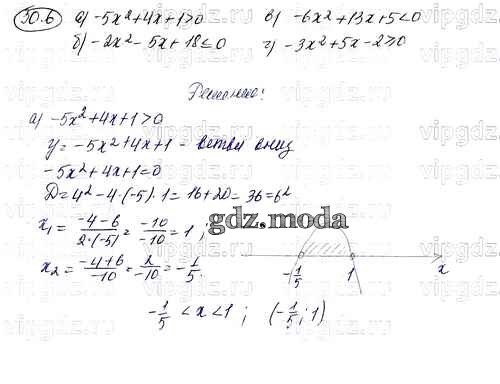 30.6 а) -5x²+4x+1>0 в) -6x²+13x+5<0
б) -2x²-5x+18≤0 г) -3x²+5x-2≥0
Решение:
а) -5x²+4x+1>0
y=-5x²+4x+1 - ветви вниз
-5x²+4x+1=0
D=4²-4·(-5)·1=16+20=36=6²
x₁=(-4-6)/(2·(-5))=-10/-10=1;
gdz.moda
x₂=(-4+6)/-10=2/-10=-1/5.
-1/5 1 x
-1/5<x<1; (-1/5;1)
vipgdz.ru